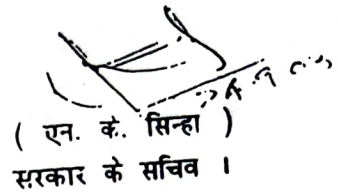 ( एन. के. सिन्हा )
सरकार के सचिव ।